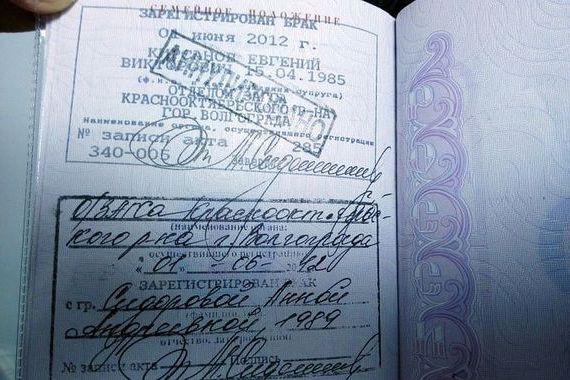 СЕМЕЙНОЕ ПОЛОЖЕНИЕ
ЗАРЕГИСТРИРОВАН БРАК
01 июня 2012 г.
ЕВГЕНИЙ
15.04.1985
ОТДЕЛОМ
КРАСНООКТЯБРЬСКОГО Р-НА
ГОР. ВОЛГОГРАДА
Наименование органа, осуществившего регистрации
№ записи акта 285
340-006 Заверено
О/ЗАГСа Краснооктябрьс-
кого р-на г. Волгограда
(наименование органа,
осуществившего регистрацию)
" 01 " 06 2012
ЗАРЕГИСТРИРОВАН БРАК
с гр. Сидоровой Анной
Андреевной, 1989
отчество, дата рождения
№ записи акта Подпись